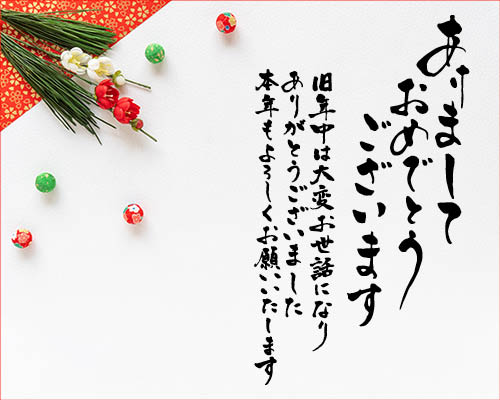 あけまして
おめでとう
ございます
旧年中は大変お世話になり
ありがとうございました
本年もよろしくお願いいたします